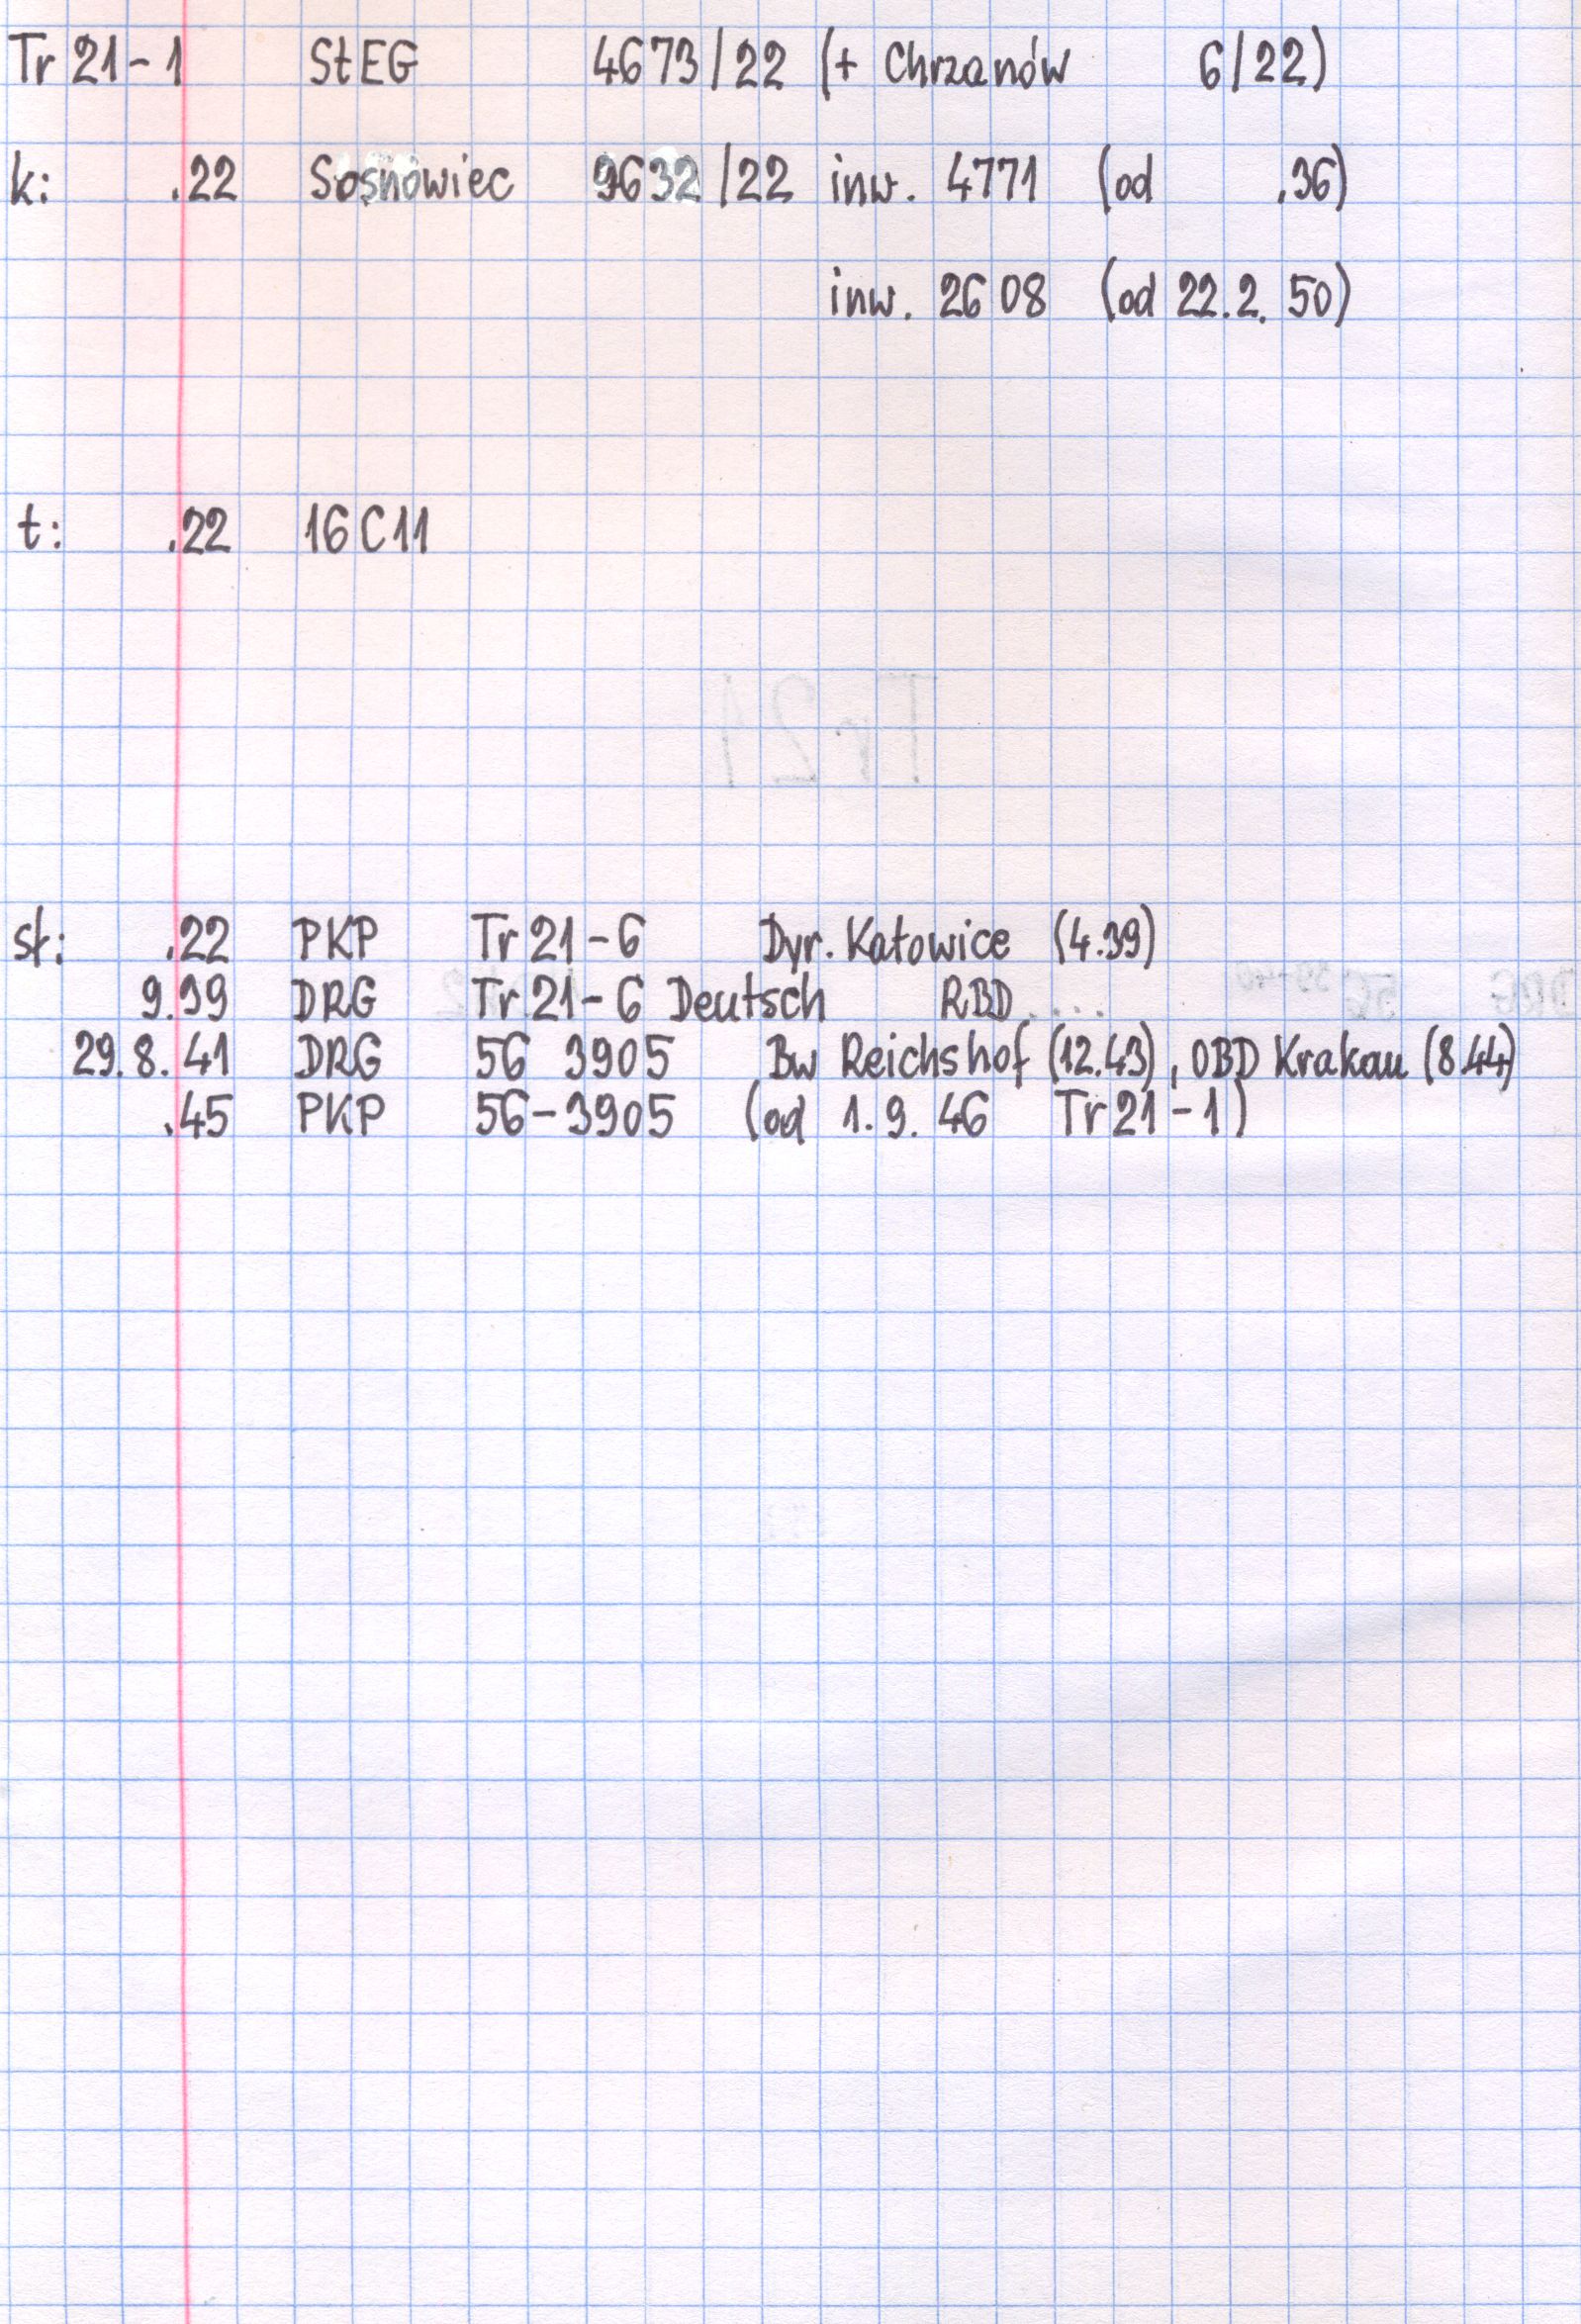 Tr 21-1 StEG 4673/22 (+ Chrzanów 6/22)
k: .22 Sosnowiec 9632/22 inw. 4771 (od .36)
inw. 2608 (od 22.2.50)
t: .22 16C11
Tr 21
sł: .22 PKP Tr 21-6 Dyr. Katowice (4.39)
9.39 DRG Tr 21-6 Deutsch RBD ....
29.8.41 DRG 56 3905 Bw Reichshof (12.43), OBD Krakau (8.44)
.45 PKP 56-3905 (od 1.9.46 Tr 21-1)